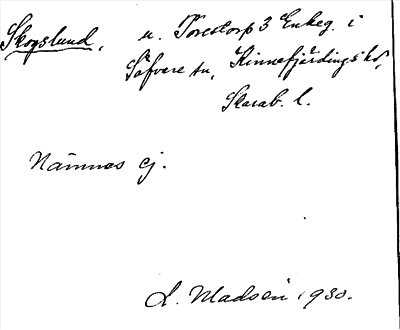 Skogslund, u. Torestorp 3 Enkeg. i
Säfvere sn, Kinnefjärdings hd,
Skarab. l.
Nämnes ej.
L. Madsén 1930.